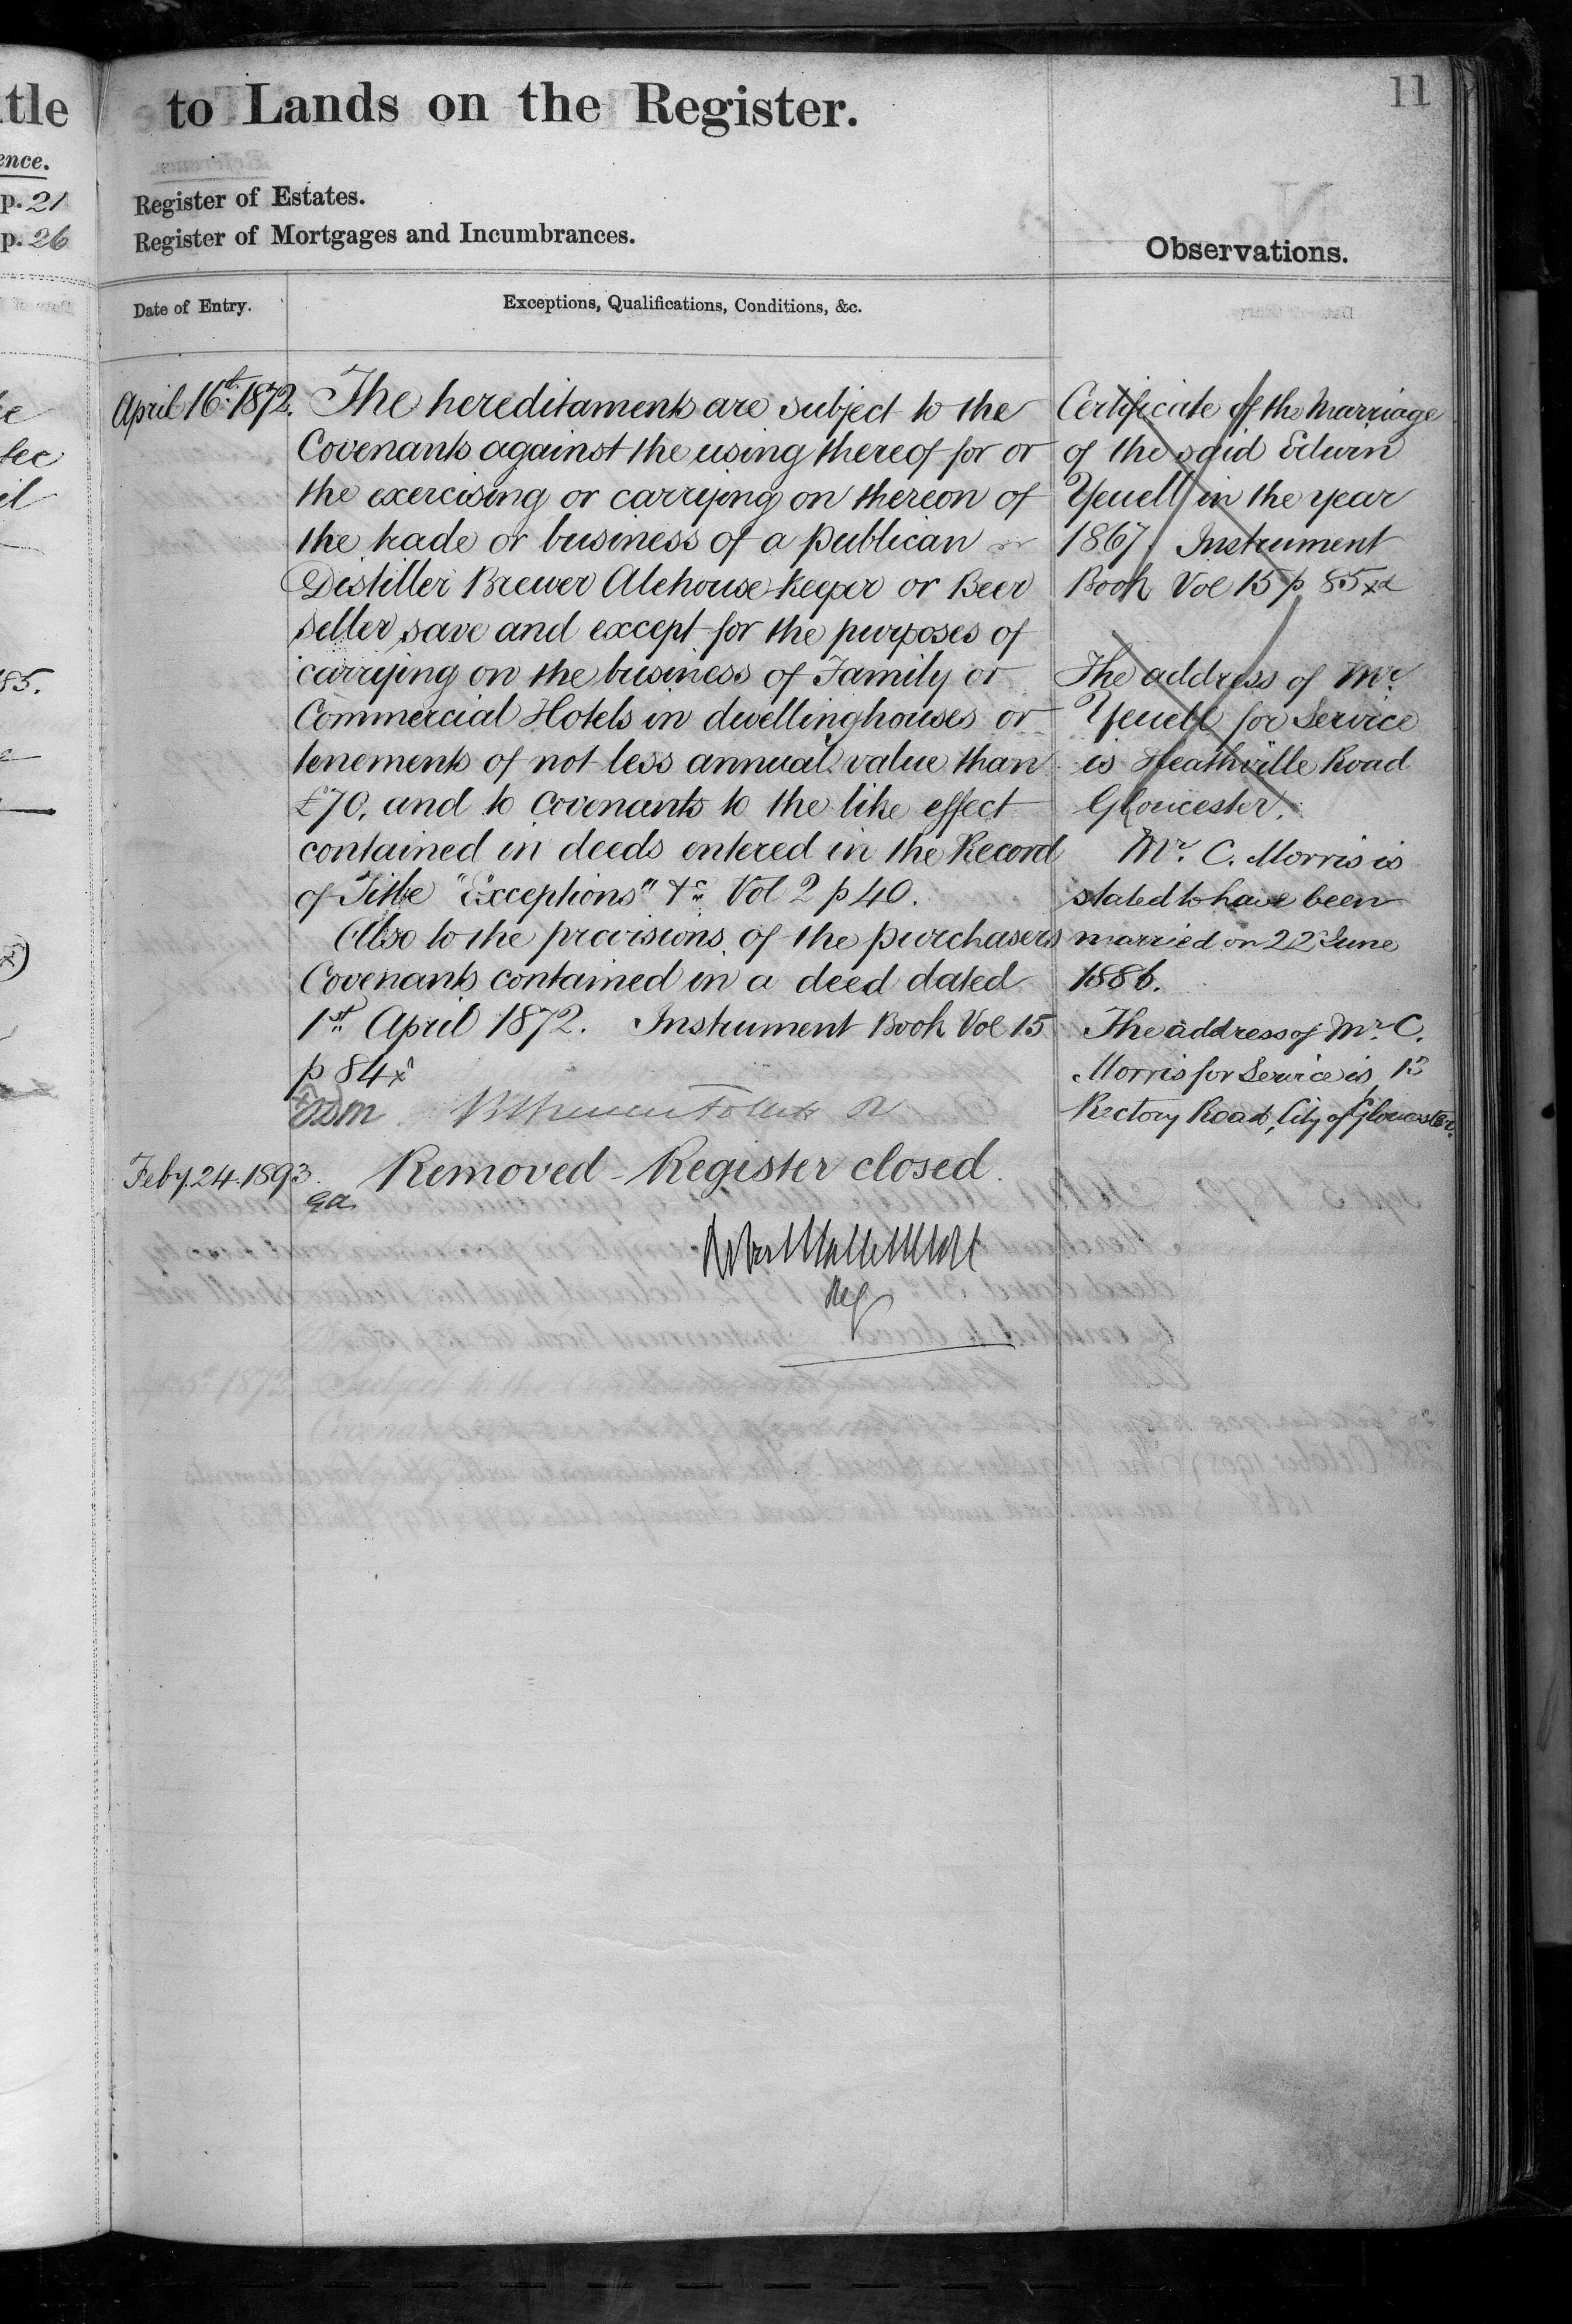 11
tle to Lands on the Register.
ence.
p. 21 Register of Estates.
p. 26 Register of Mortgages and Incumbrances.
Observations.
Date of Entry. Exceptions, Qualifications, Conditions, &c.
April 16th 1872. The hereditaments are subject to the
Covenants against the using thereof for or
the exercising or carrying on thereon of
the trade or business of a Publican or
Distiller Brewer Alehouse keeper or Beer
seller save and except for the purposes of
carrying on the business of Family or
Commercial Hotels in dwellinghouses or
tenements of not less annual value than
£70. and to Covenants to the like effect
contained in deeds entered in the Record
of Title "Exceptions" &c Vol 2 p 40.
Also to the provisions of the purchasers
Covenants contained in a deed dated
1st April 1872. Instrument Book Vol 15
p 84
Feby. 24. 1893. Removed - Register closed.
Reg
Certificate of the Marriage
of the said Edwin
Yeuell in the year
1867. Instrument
Book Vol 15 p 85
The address of Mr.
Yeuell for Service
is Heathville Road
Gloucester.
Mr. C. Morris is
stated to have been
married on 22 June
1886.
The address of Mr. C.
Morris for Service is
Rectory Road, City of Gloucester.